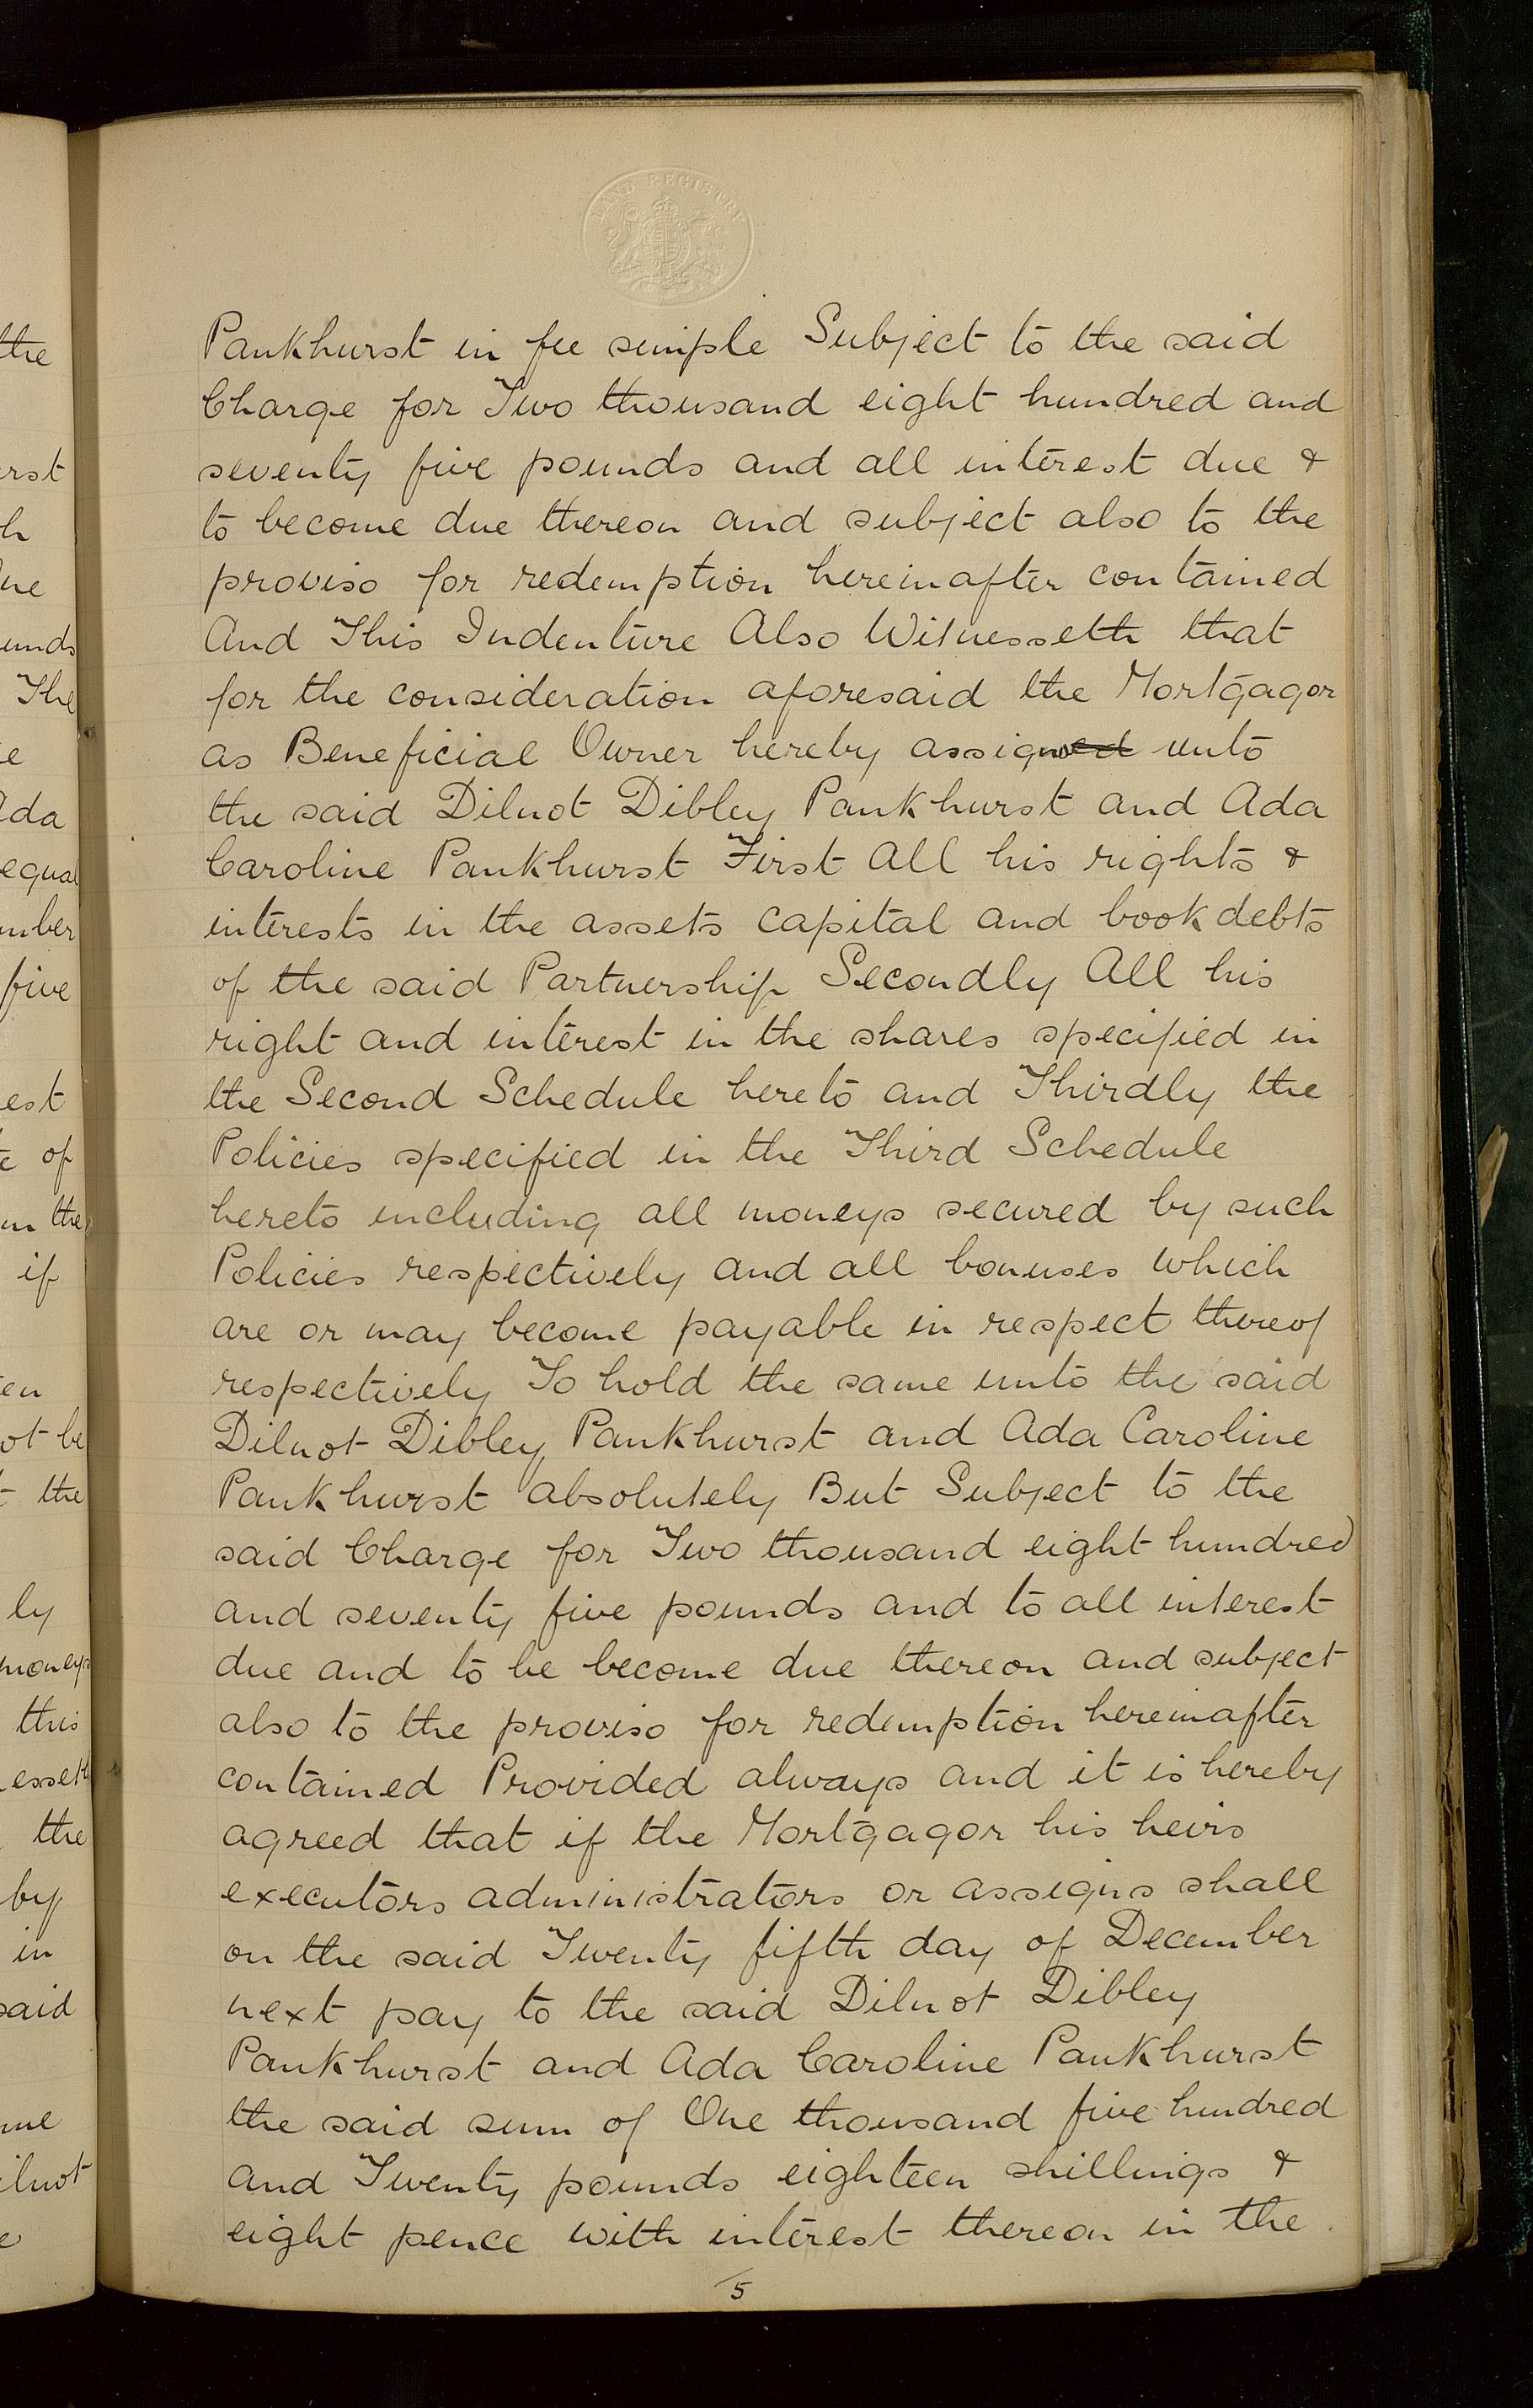 LAND REGISTRY
Pankhurst in fee simple Subject to the said
Charge for Two thousand eight hundred and
seventy five pounds and all interest due &
to become due thereon and subject also to the
proviso for redemption hereinafter contained
And This Indenture Also Witnesseth that
for the consideration aforesaid the Mortgagor
as Beneficial Owner hereby assigned unto
the said Dilnot Dibley Pankhurst and Ada
Caroline Pankhurst First All his rights &
interests in the assets capital and book debts
of the said Partnership Secondly All his
right and interest in the shares specified in
the Second Schedule hereto and Thirdly the
Policies specified in the Third Schedule
hereto including all moneys secured by such
Policies respectively and all bonuses which
are or may become payable in respect thereof
respectively To hold the same unto the said
Dilnot Dibley Pankhurst and Ada Caroline
Pankhurst absolutely But Subject to the
said Charge for Two thousand eight hundred
and seventy five pounds and to all interest
due and to be become due thereon and subject
also to the proviso for redemption hereinafter
contained Provided always and it is hereby
agreed that if the Mortgagor his heirs
executors administrators or assigns shall
on the said Twenty fifth day of December
next pay to the said Dilnot Dibley
Pankhurst and Ada Caroline Pankhurst
the said sum of One thousand five hundred
and Twenty pounds eighteen shillings &
eight pence with interest thereon in the
5